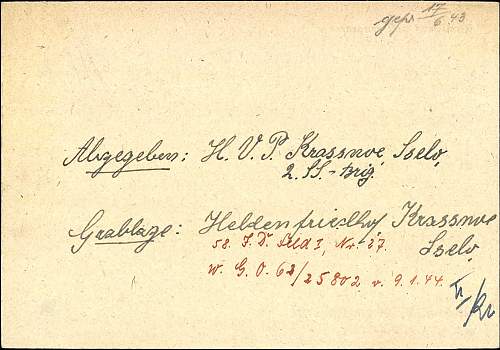 gepr 17/6 43
Abgegeben: H. V. P. Krassnoe Sselo,
2. SS.-Brig.
Grablage: Heldenfriedhof Krassnoe
Sselo,
58. J. D. Feld I, Nr. 27.
W. G. O. 62/25802 v. 9.1.44.